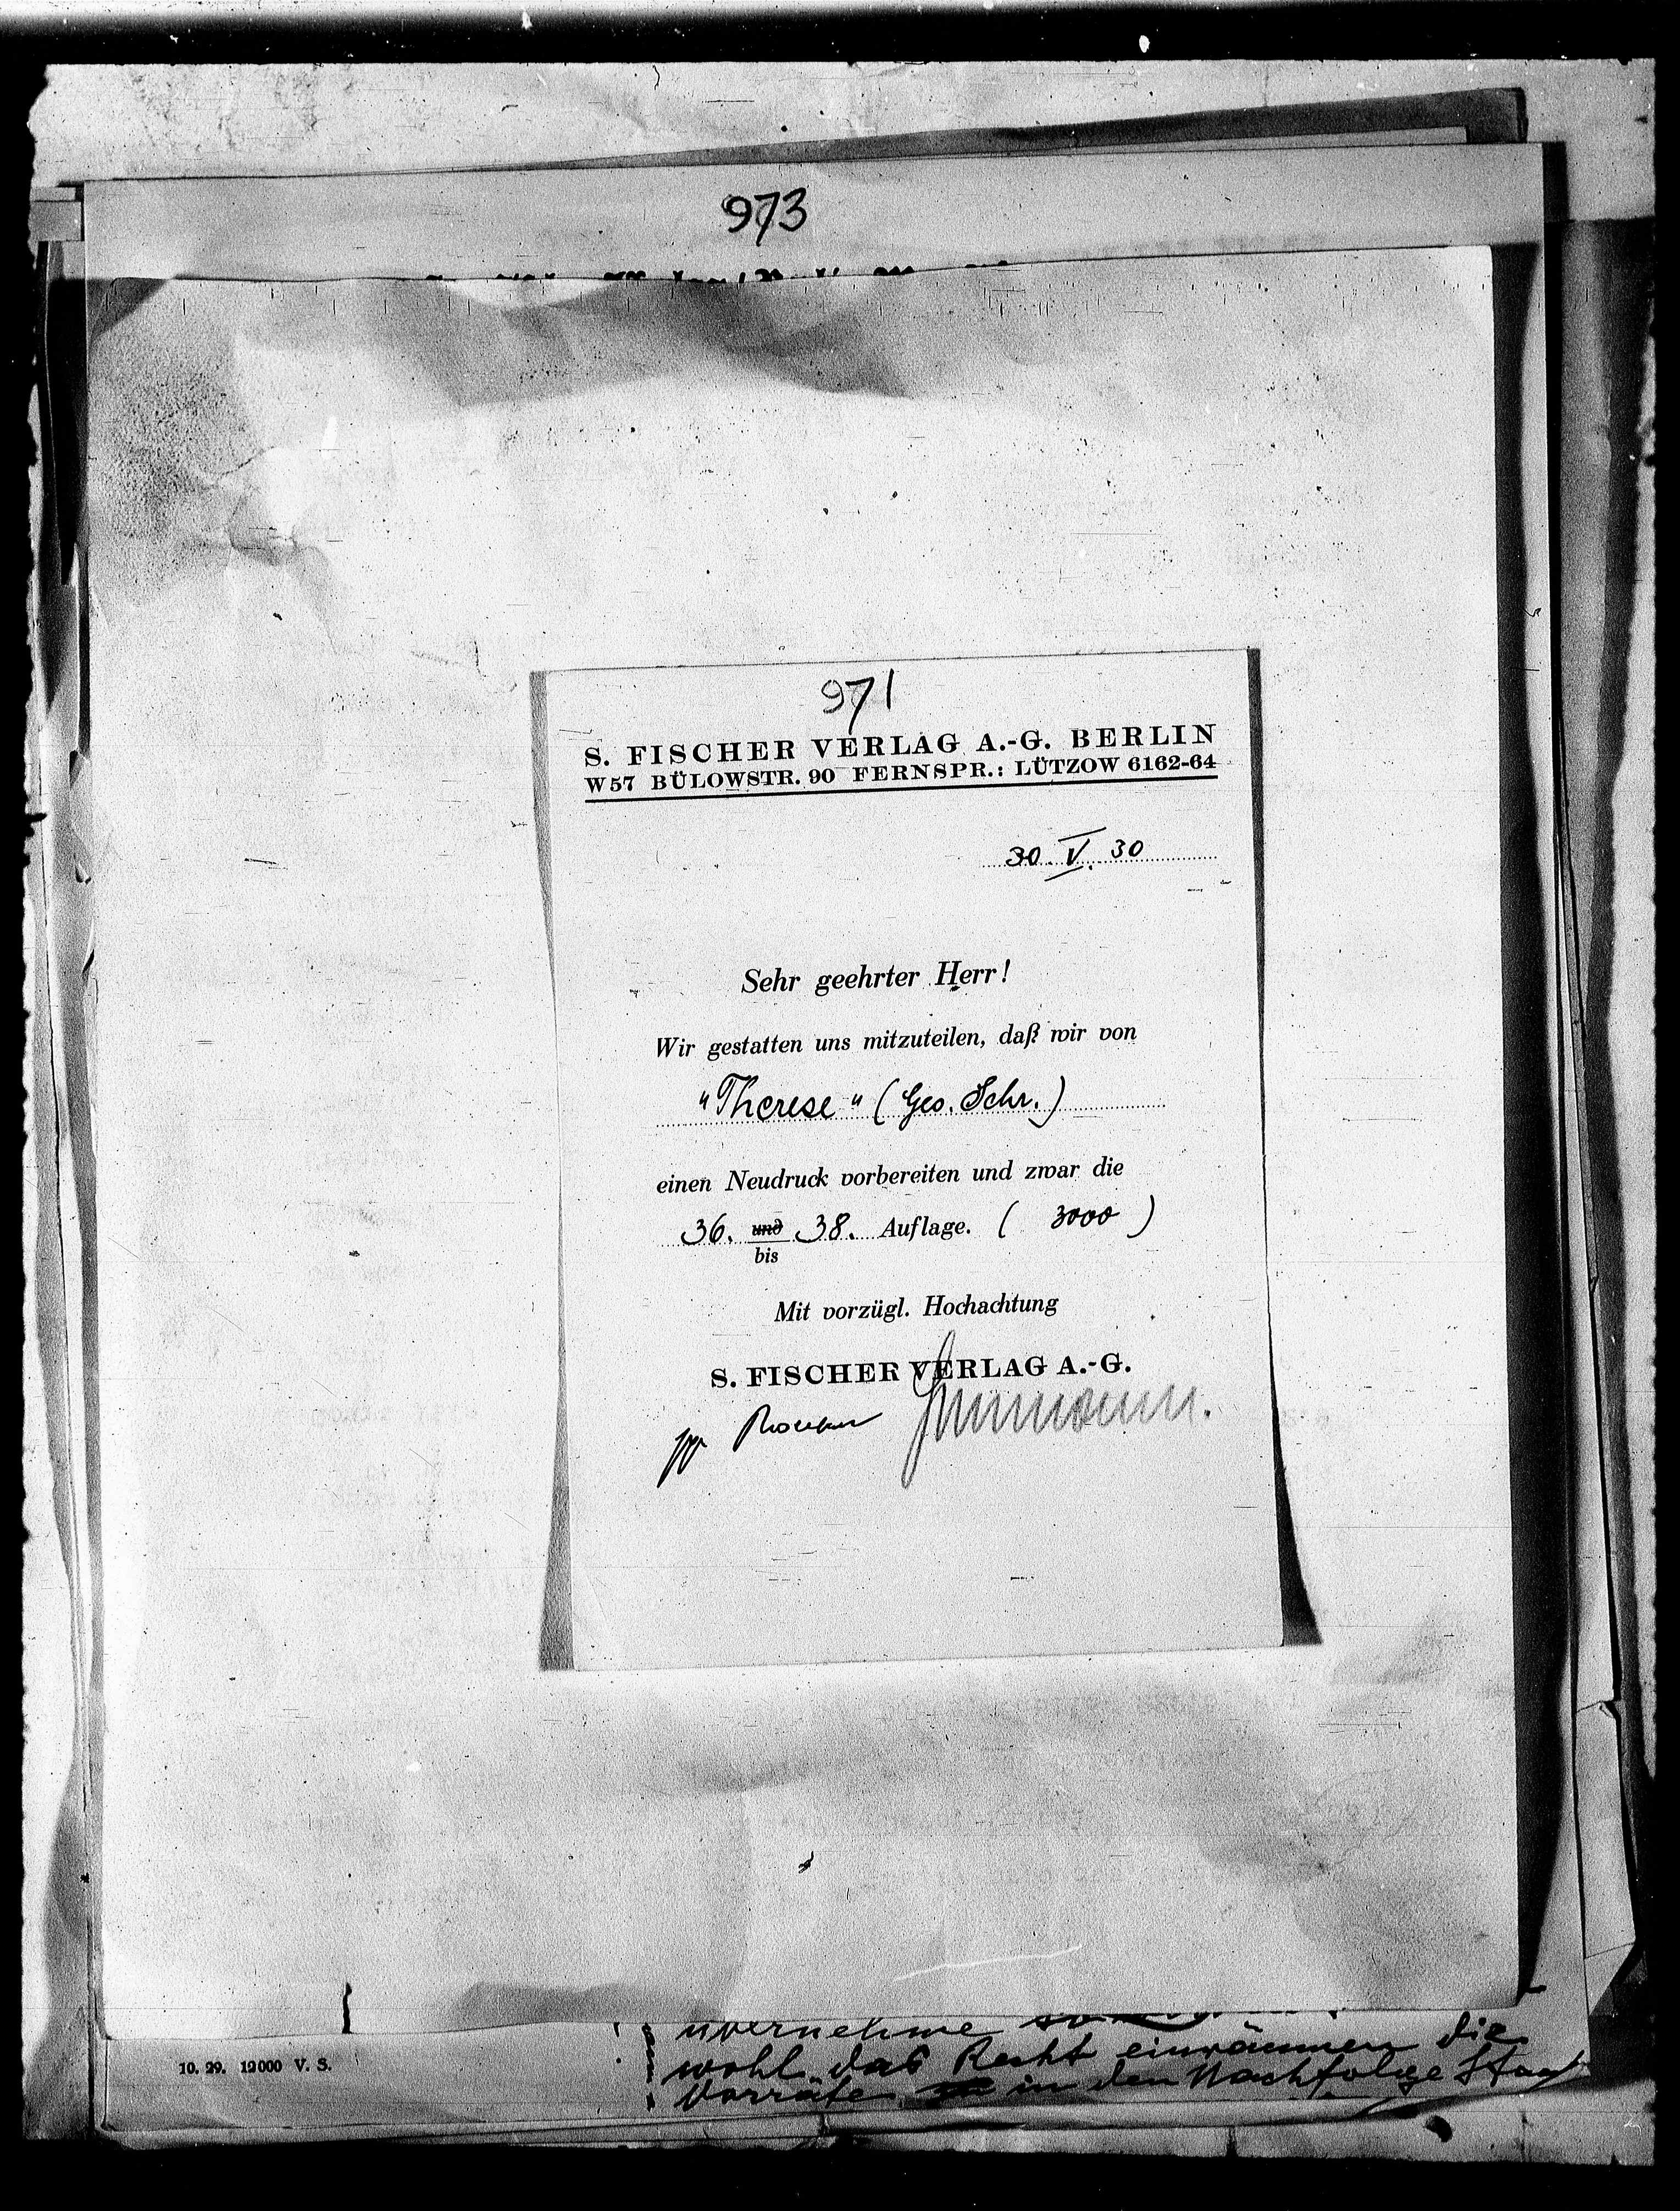 973
971
S. FISCHER VERLAG A.-G. BERLIN
W 57 BÜLOWSTR. 90 FERNSPR.: LÜTZOW 6162-64
30. V. 30
Sehr geehrter Herr!
Wir gestatten uns mitzuteilen, daß wir von
"Therese" (Ges. Schr.)
einen Neudruck vorbereiten und zwar die
36. und 38. Auflage. ( 3000 )
bis
Mit vorzügl. Hochachtung
S. FISCHER VERLAG A.-G.
pp
übernehme
wohl das Recht einräumen die
Vorräte in den Nachfolge Staat
10. 29. 12000 V. S.